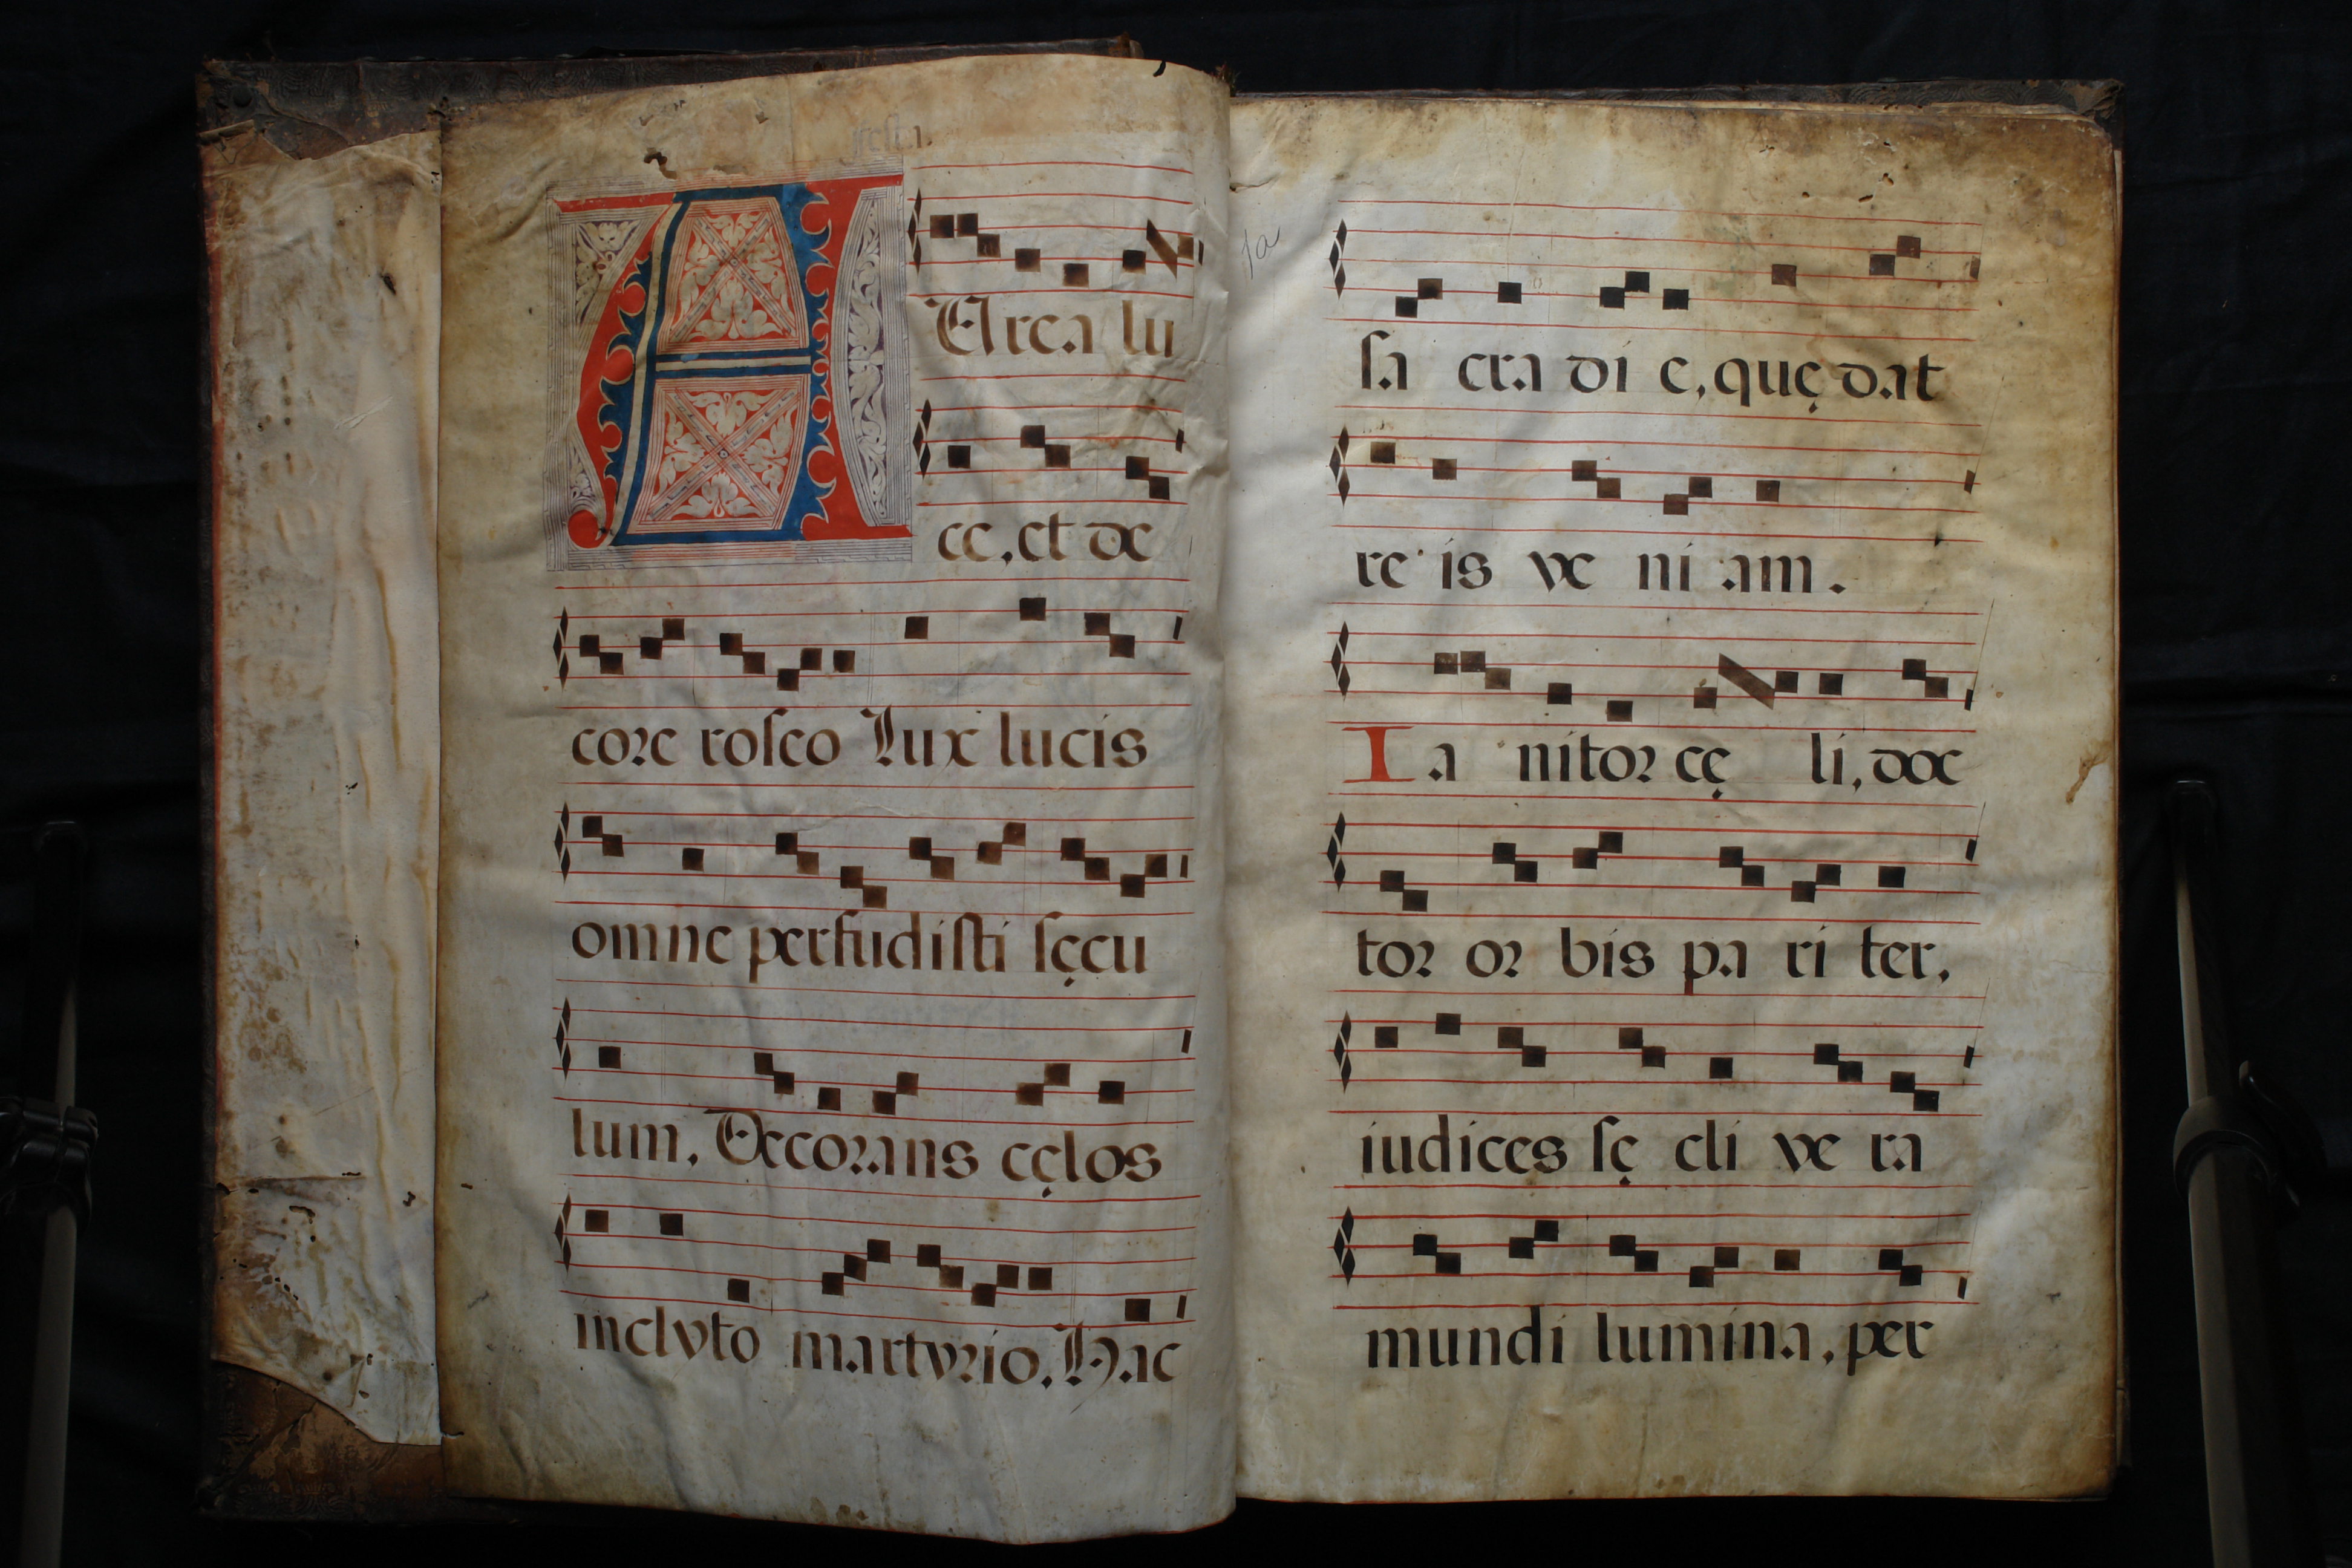 festa.
A Urea lu
ce, et de
core roseo Lux lucis
omne perfudisti sęcu
lum, Decorans cęlos
inclyto martyrio. Hac
sa cra di e, quę dat
re is ve ni am.
Ia nitor cę li, doc
tor or bis pa ri ter,
iudices sę cli ve ra
mundi lumina, per